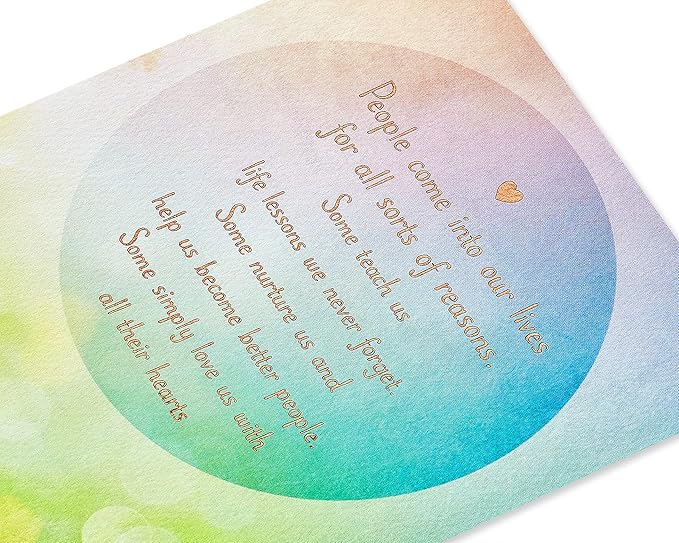 People come into our lives
for all sorts of reasons.
Some teach us
life lessons we never forget.
Some nurture us and
help us become better people.
Some simply love us with
all their hearts.